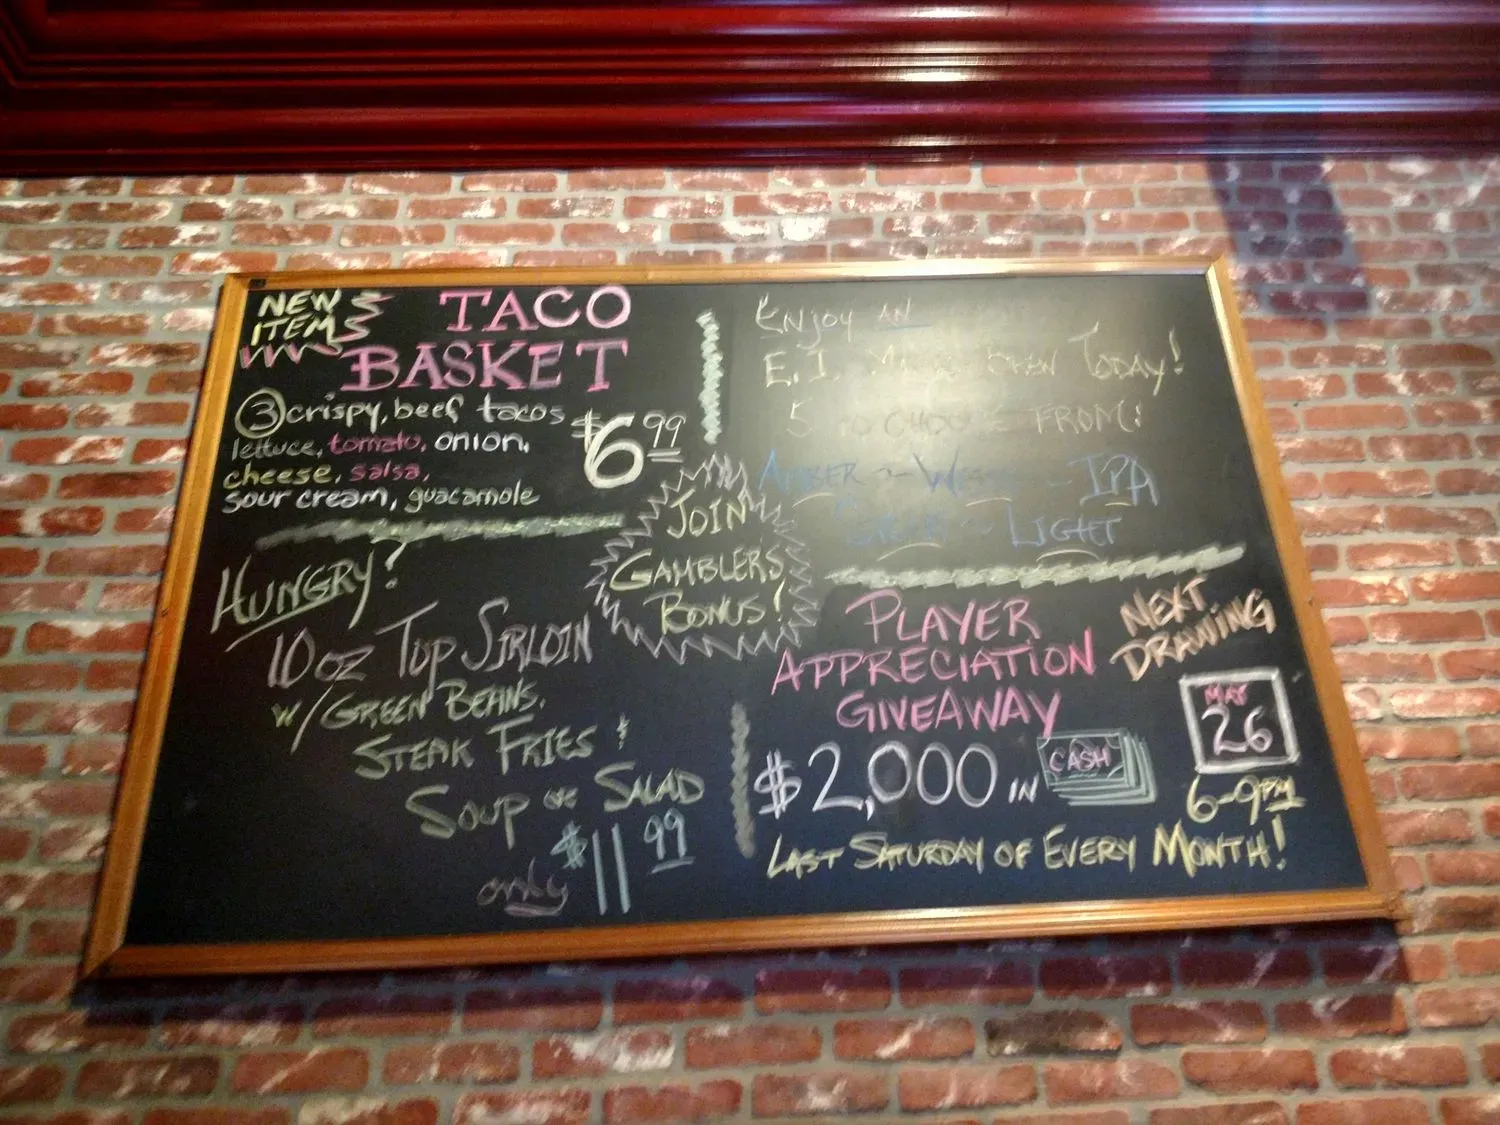 NEW
ITEM
TACO
BASKET
3 crispy, beef tacos
lettuce, tomato, onion,
cheese, salsa,
sour cream, guacamole
$6.99
HUNGRY?
10 oz TOP SIRLOIN
w/ GREEN BEANS,
STEAK FRIES &
SOUP or SALAD
only $11.99
JOIN
GAMBLERS
BONUS!
ENJOY AN
E.I. BEER TODAY!
5 TO CHOOSE FROM:
AMBER ~ ~ IPA
~ LIGHT
PLAYER
APPRECIATION
GIVEAWAY
$2,000 IN CASH
NEXT
DRAWING
MAY
26
6-9PM
LAST SATURDAY OF EVERY MONTH!